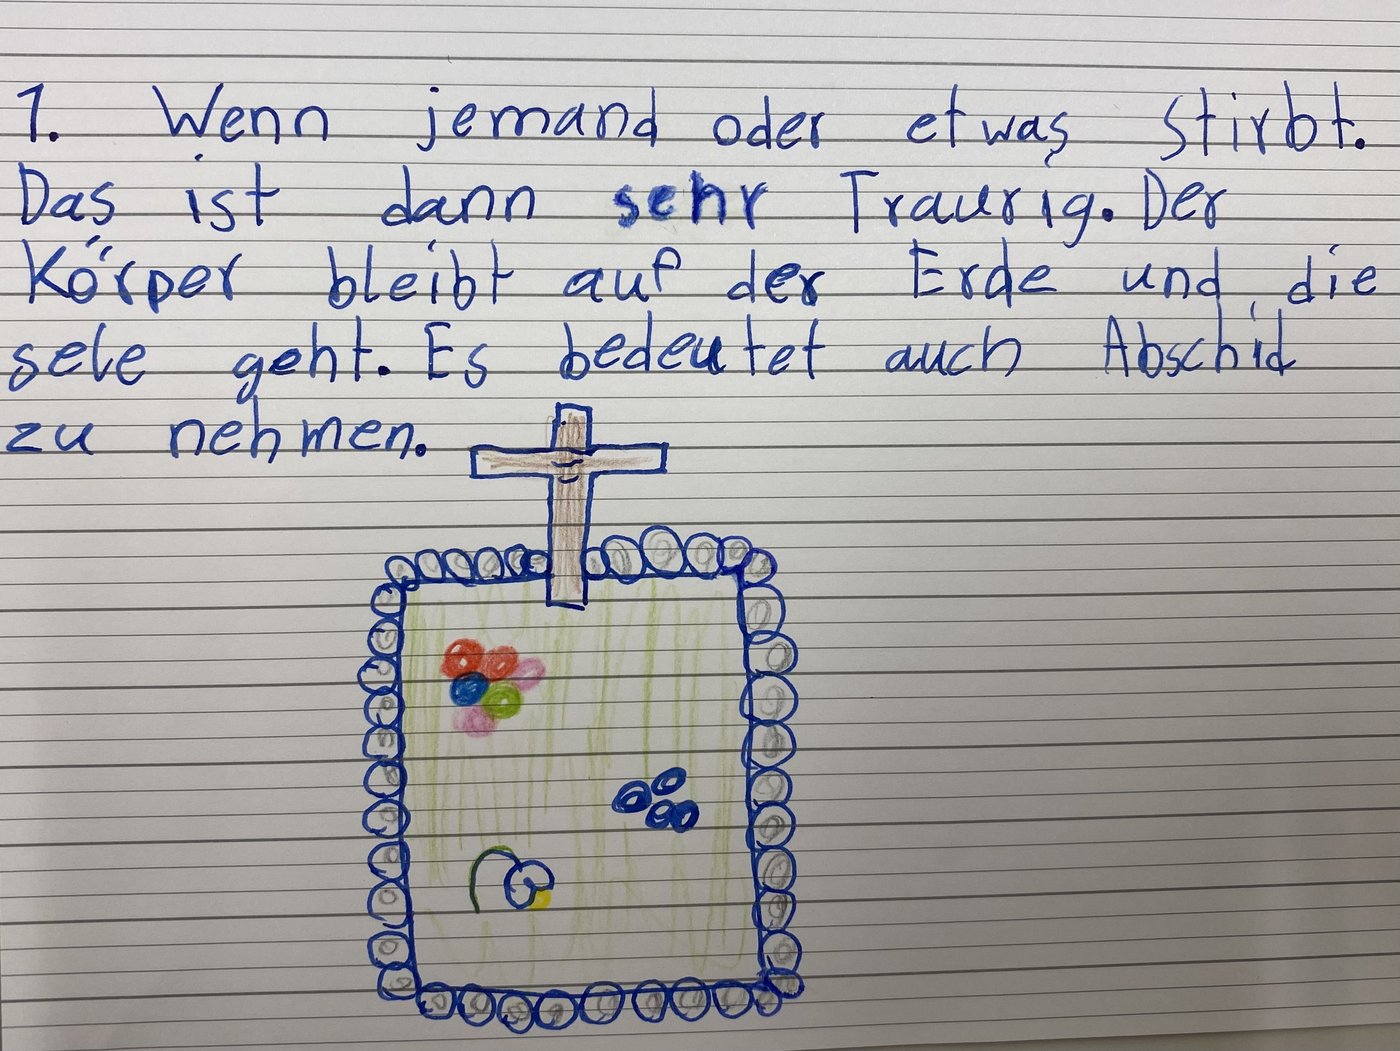 1. Wenn jemand oder etwas stirbt.
Das ist dann sehr Traurig. Der
Körper bleibt auf der Erde und die
sele geht. Es bedeutet auch Abschid
zu nehmen.